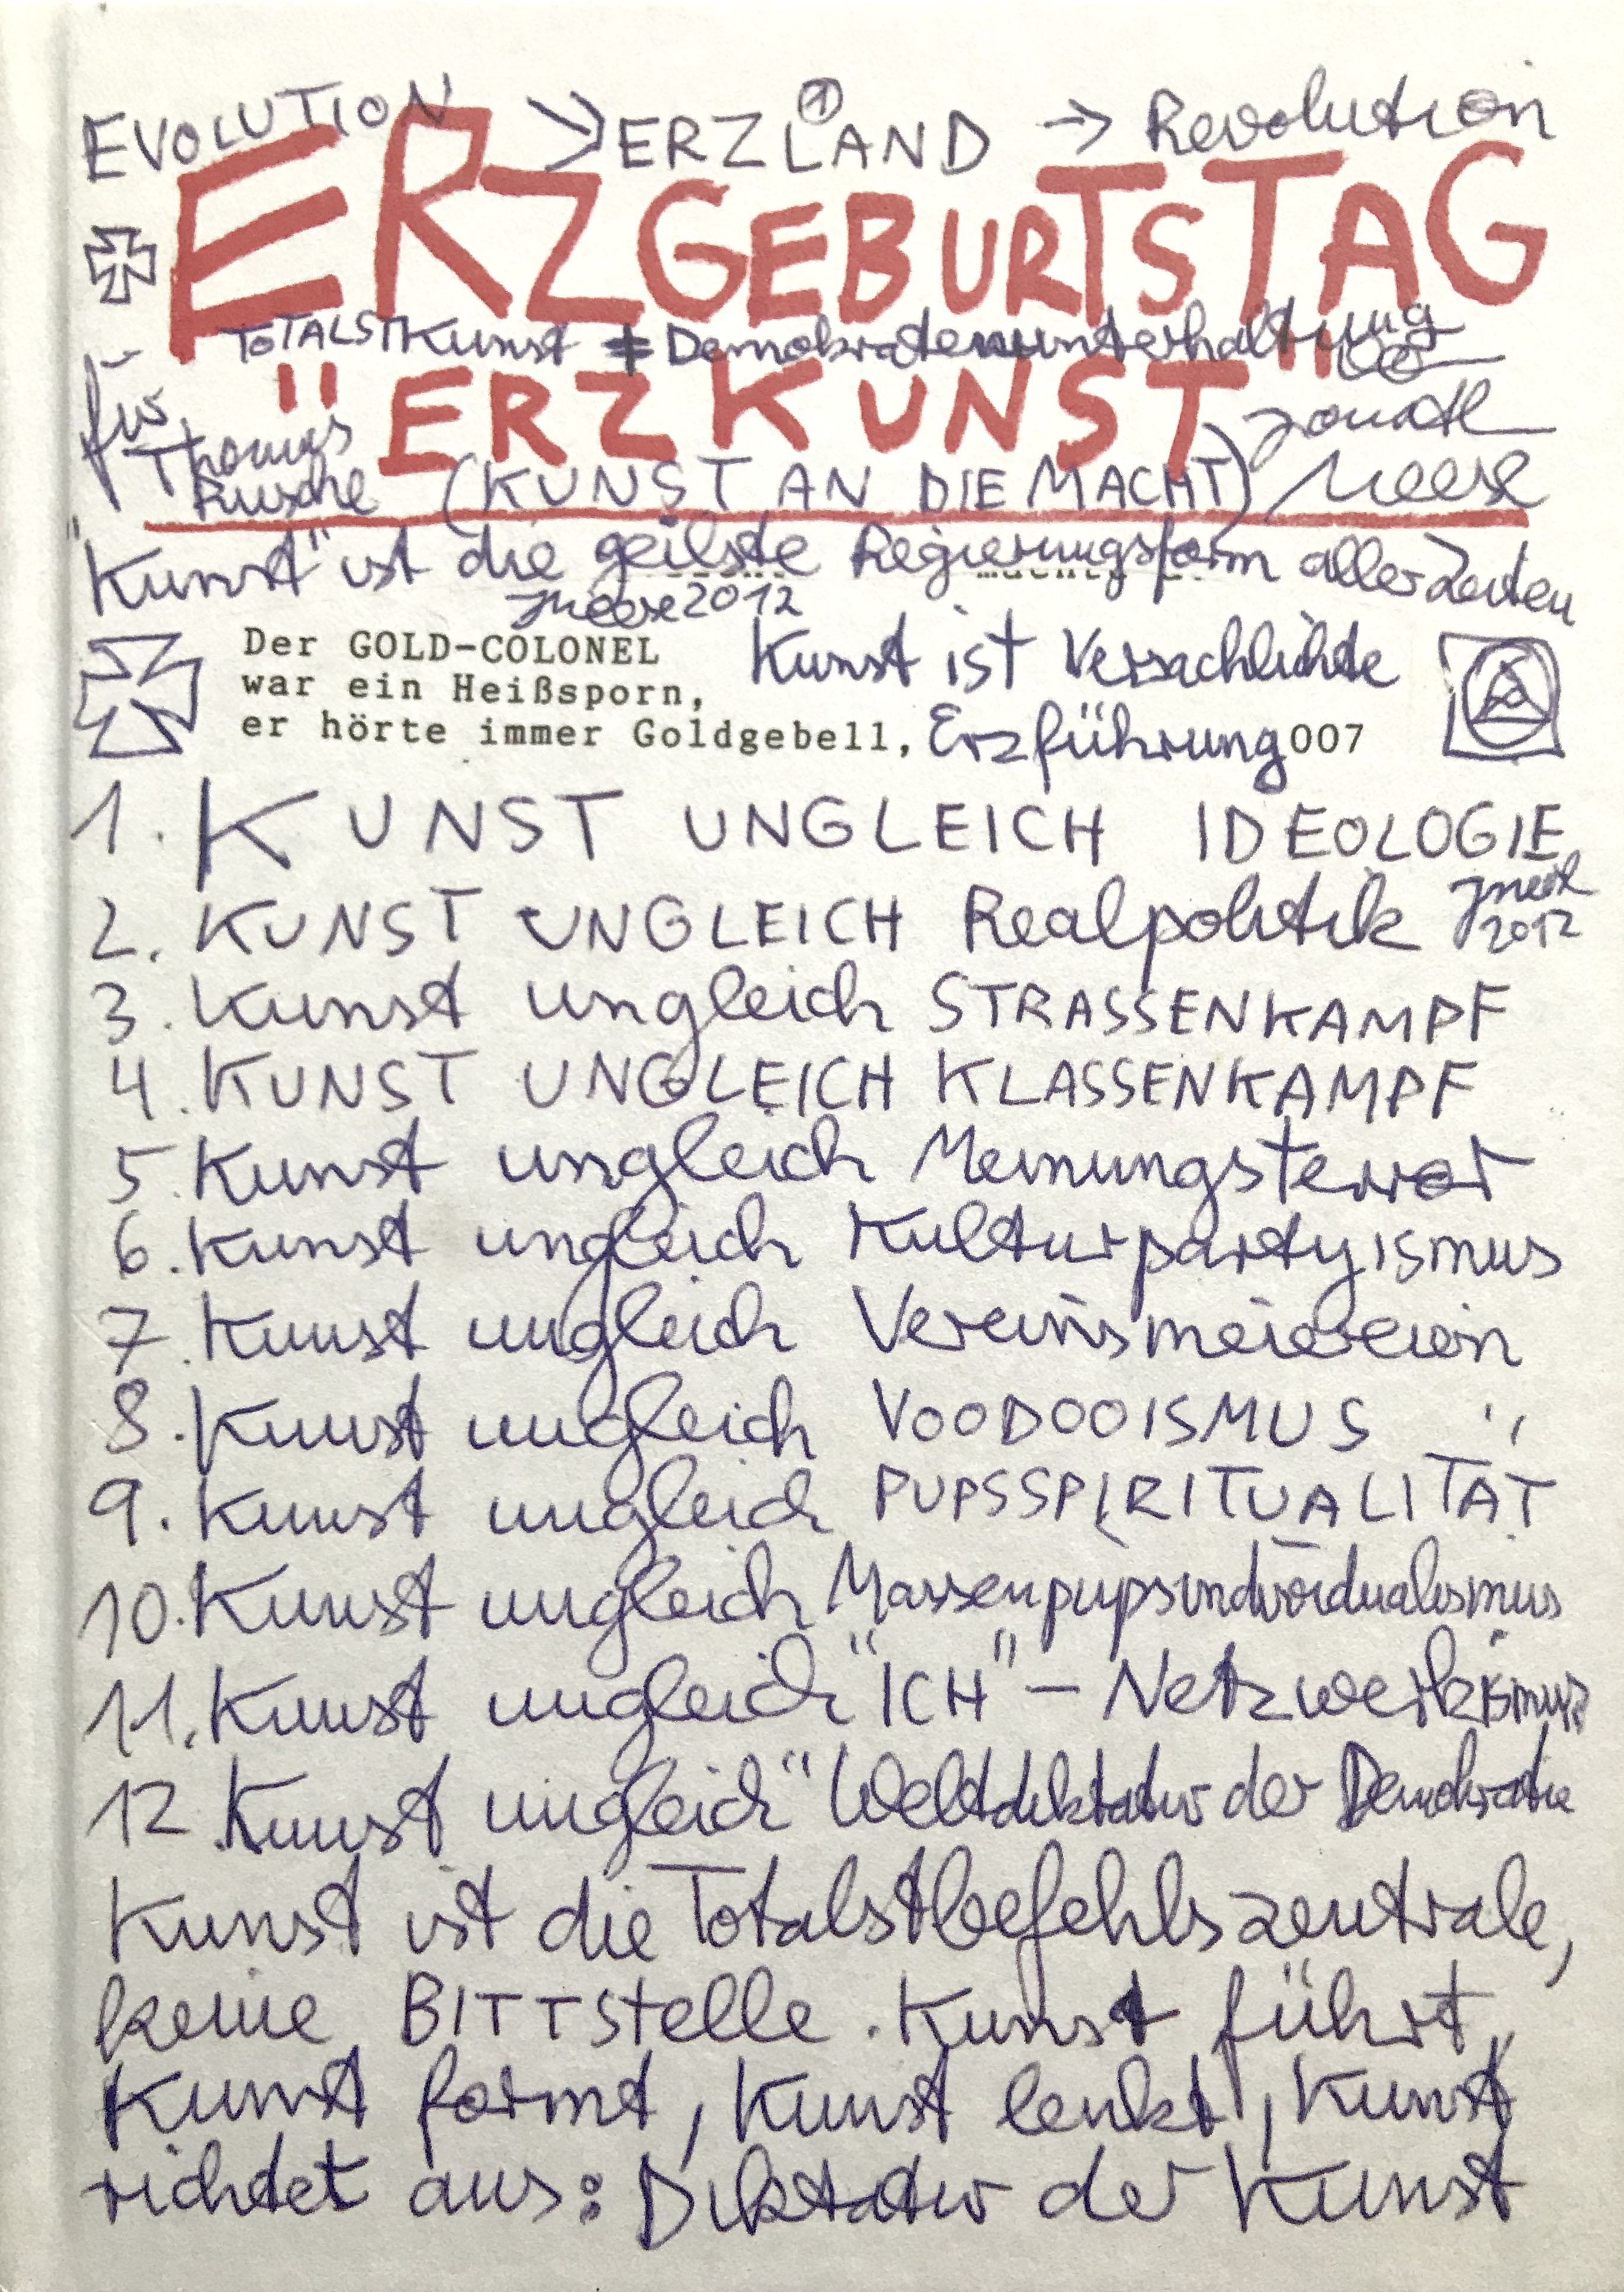 EVOLUTION → ERZLAND → Revolution
ERZGEBURTSTAG
TOTALSTKunst ≠ Demokratenunterhaltung
"ERZKUNST"
für Thomas Rusche
Jonathan Meese
(KUNST AN DIE MACHT)
"Kunst" ist die geilste Regierungsform aller Zeiten
JMeese 2012
Der GOLD-COLONEL
war ein Heißsporn,
er hörte immer Goldgebell,
Kunst ist Versachlichte
Erzführung 007
1. KUNST UNGLEICH IDEOLOGIE
2. KUNST UNGLEICH Realpolitik
JMeese 2012
3. Kunst ungleich STRASSENKAMPF
4. KUNST UNGLEICH KLASSENKAMPF
5. Kunst ungleich Meinungsterror
6. Kunst ungleich Kulturpartyismus
7. Kunst ungleich Vereinsmeiereien
8. Kunst ungleich VOODOOISMUS
9. Kunst ungleich PUPSSPIRITUALITÄT
10. Kunst ungleich Massenpupsindividualismus
11. Kunst ungleich "ICH"-Netzwerkismus
12. Kunst ungleich "Weltdiktatur der Demokratie
Kunst ist die Totalstbefehlszentrale,
keine BITTstelle. Kunst führt,
Kunst formt, Kunst lenkt, Kunst
richtet aus: Diktatur der Kunst